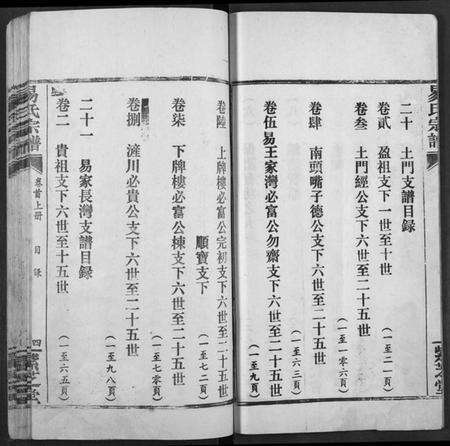 易氏宗譜
二十 土門支譜目錄
卷貳 盈祖支下一世至十世
(一至二一頁)
卷叁 土門經公支下六世至二十五世
(一至一零六頁)
卷肆 南頭嘴子德公支下六世至二十五世
(一至六三頁)
卷伍 易王家灣必富公勿齋支下六世至二十五世
(一至九頁)
卷陸 上牌樓必富公完初支下六世至二十五世
順寶支下
(一至七二頁)
卷柒 下牌樓必富公楝支下六世至二十五世
(一至七零頁)
卷捌 漄川必貴公支下六世至二十五世
(一至九八頁)
二十一 易家長灣支譜目錄
卷二 貴祖支下六世至十五世
(一至六五頁)
易氏宗譜
卷首上册 目錄
四